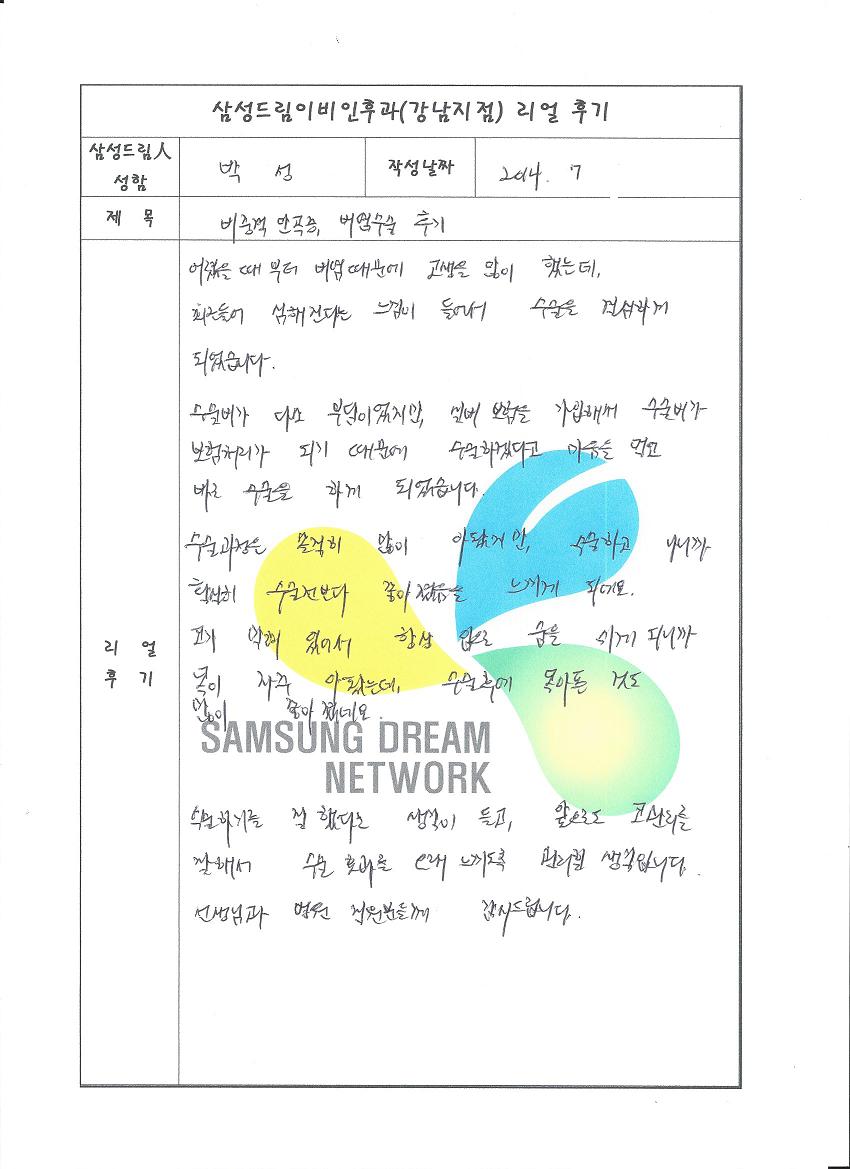 삼성드림이비인후과(강남지점) 리얼 후기
삼성드림人
성함
박 성
작성날짜
2014. 7
제 목
비중격 만곡증, 비염수술 후기
리 얼
후 기
어렸을 때 부터 비염때문에 고생을 많이 했는데,
최근들어 심해진다는 느낌이 들어서 수술을 결심하게
되었습니다.
수술비가 다소 부담이었지만, 실비 보험을 가입해서 수술비가
보험처리가 되기 때문에 수술하겠다고 마음을 먹고
바로 수술을 하게 되었습니다.
수술과정은 솔직히 많이 아팠지만, 수술하고 나니까
확실히 수술전보다 좋아졌음을 느끼게 되네요.
코가 막혀 있어서 항상 입으로 숨을 쉬게 되니까
목이 자주 아팠는데, 수술후에 목아픈 것도
많이 좋아졌네요.
SAMSUNG DREAM
NETWORK
수술하기를 잘 했다는 생각이 들고, 앞으로도 코관리를
잘해서 수술 효과를 오래 느끼도록 관리할 생각입니다.
선생님과 병원 직원분들께 감사드립니다.